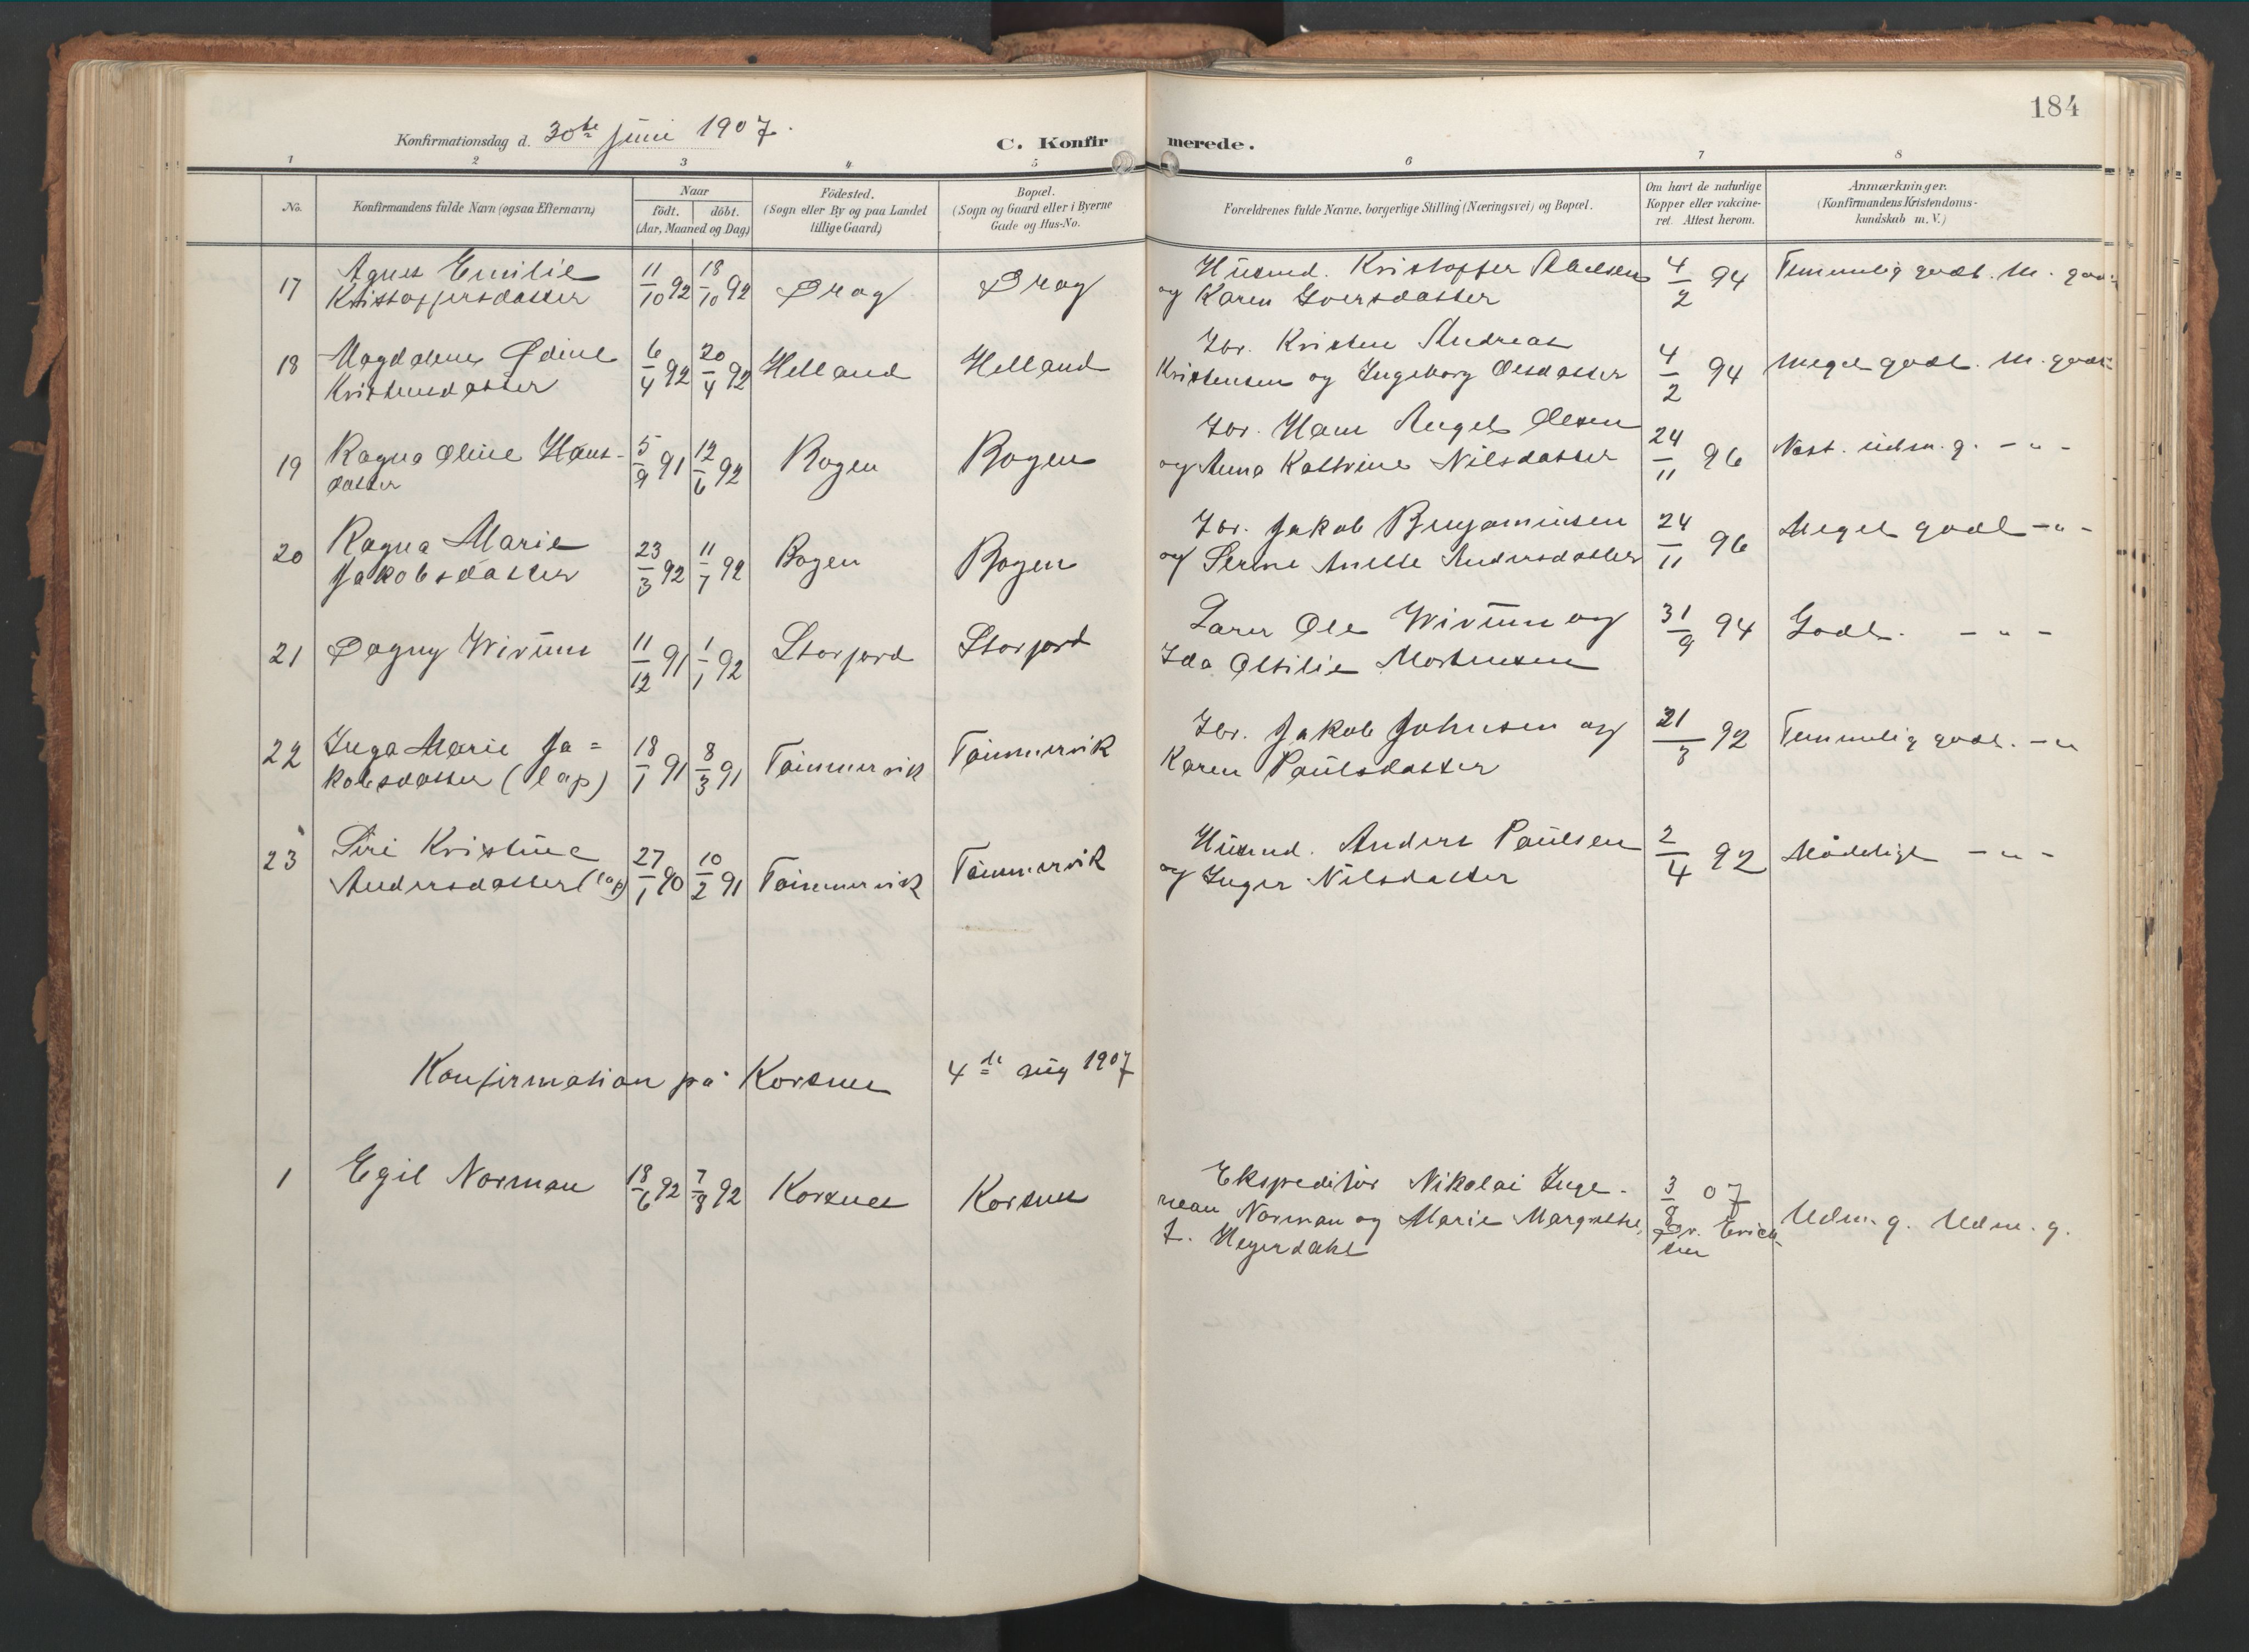 184
Konfirmationsdag d. 30te juni 1907.
C. Konfirmerede.
1 2 3 4 5 6 7 8
No.
Konfirmandens fulde Navn (ogsaa Efternavn)
Naar
födt. döbt.
(Aar, Maaned og Dag)
Födested.
(Sogn eller By og paa Landet
tillige Gaard)
Bopæl.
(Sogn og Gaard eller i Byerne
Gade og Hus-No.
Forældrenes fulde Navne, borgerlige Stilling (Næringsvei) og Bopæl.
Om havt de naturlige
Kopper eller vakcine-
ret. Attest herom.
Anmærkninger.
(Konfirmandens Kristendoms-
kundskab m. V.)
17 Agnes Emilie
Kristoffersdatter
11/10 92 18/10 92 Drag Drag
Husmd. Kristoffer
og Karen Iversdatter
4/2 94 Temmelig godt. M. godt
18 Magdalene Ødine
Kristensdatter
6/4 92 20/4 92 Helland Helland
Ibr. Kristen Andreas
Kristensen og Ingeborg Olsdatter
4/2 94 Meget godt. M. godt
19 Ragna Oline Hans-
datter
5/9 91 12/6 92 Bogen Bogen
Ibr. Hans Angel Olsen
og Anna Kathrine Nilsdatter
24/11 96 Næst. udm. g. - " -
20 Ragna Marie
Jakobsdatter
23/3 92 11/7 92 Bogen Bogen
Ibr. Jakob Benjaminsen
og Serine Anette Andersdatter
24/11 96 Meget godt - " -
21 Dagny Wirum
11/12 91 1/1 92 Storjord Storjord
Lærer Ole Wirum og
Ida Otilie Mortensen
31/9 94 Godt. - " -
22 Inga Marie Ja=
kobsdatter (lap)
18/1 91 8/3 91 Tömmervik Tömmervik
Ibr. Jakob Johnsen og
Karen Paulsdatter
21/3 92 Temmelig godt. - "
23 Siri Kristine
Andersdatter (lap)
27/1 90 10/2 91 Tömmervik Tömmervik
Husmd. Anders Paulsen
og Inger Nilsdatter
2/4 92 Mådeligt - " -
Konfirmation på Korsnes 4de aug 1907
1 Egil Norman 18/6 92 7/8 92 Korsnes Korsnes
Ekspeditör Nikolai Inge-
man Norman og Marie Margrethe
f. Heyerdahl
3/8 07
Dr. Erich-
sen
Udm. g. Udm. g.